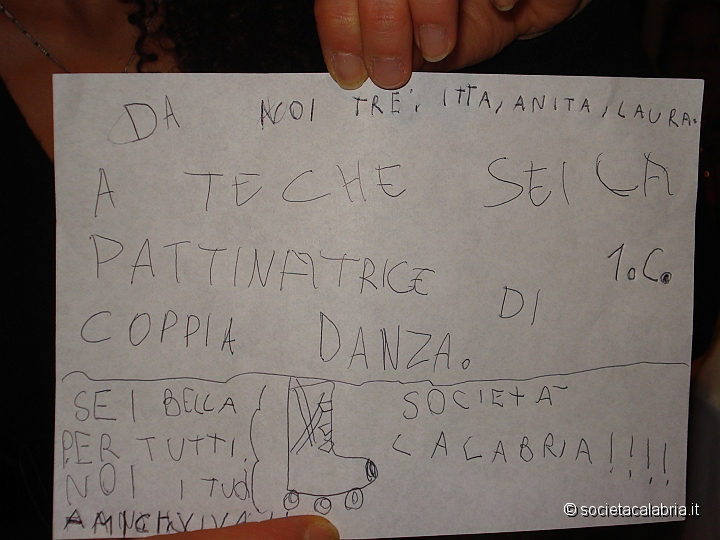 DA NOI TRE: ITTA, ANITA, LAURA.
A TE CHE SEI LA
PATTINATRICE 1.C.
DI
COPPIA DANZA.
SEI BELLA
PER TUTTI
NOI I TUOI
SOCIETÀ
CALABRIA!!!!
© societacalabria.it